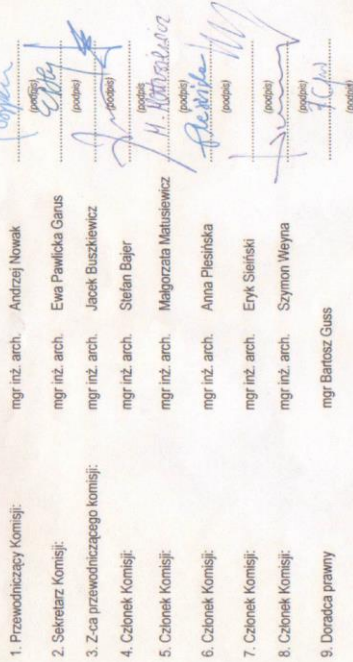 1. Przewodniczący Komisji: mgr inż. arch. Andrzej Nowak
(podpis)
2. Sekretarz Komisji: mgr inż. arch. Ewa Pawlicka Garus
(podpis)
3. Z-ca przewodniczącego komisji: mgr inż. arch. Jacek Buszkiewicz
(podpis)
4. Członek Komisji: mgr inż. arch. Stefan Bajer
(podpis)
5. Członek Komisji: mgr inż. arch. Małgorzata Matusiewicz M. Matusiewicz
(podpis)
6. Członek Komisji: mgr inż. arch. Anna Plesińska
(podpis)
7. Członek Komisji: mgr inż. arch. Eryk Sieiński
(podpis)
8. Członek Komisji: mgr inż. arch. Szymon Weyna
(podpis)
9. Doradca prawny mgr Bartosz Guss
(podpis)